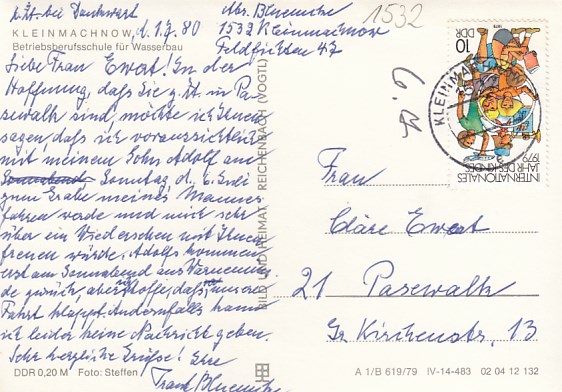 z. Zt. bei Dankwart
KLEINMACHNOW, d. 1.7.80
Betriebsberufsschule für Wasserbau
Liebe Frau Ewert! In der
Hoffnung, daß Sie z. Zt. in Pa-
sewalk sind, möchte ich Ihnen
sagen, daß ich voraussichtlich
mit meinem Sohn Adolf am
Sonnabend Sonntag d. 6. Juli
zum Grabe meines Mannes
fahren werde und mich sehr
über ein Wiedersehen mit Ihnen
freuen würde. Adolfs kommen
erst am Sonnabend aus Warnemün-
de zurück, aber hoffe, daß unsere
Fahrt klappt. Andernfalls kann
ich leider keine Nachricht geben.
Sehr herzliche Grüße! Ihre
DDR 0,20 M Foto: Steffen
Abs.
1532 Kleinmachnow
Feldfichten 47
1532
BILD UND HEIMAT REICHENBACH (VOGTL)
DDR
10
1979
INTERNATIONALES
JAHR DES KINDES
1979
KLEINMACHNOW
Frau
Cläre Ewert
21 Pasewalk
Gr. Kirchenstr. 13
A 1/B 619/79 IV-14-483 02 04 12 132